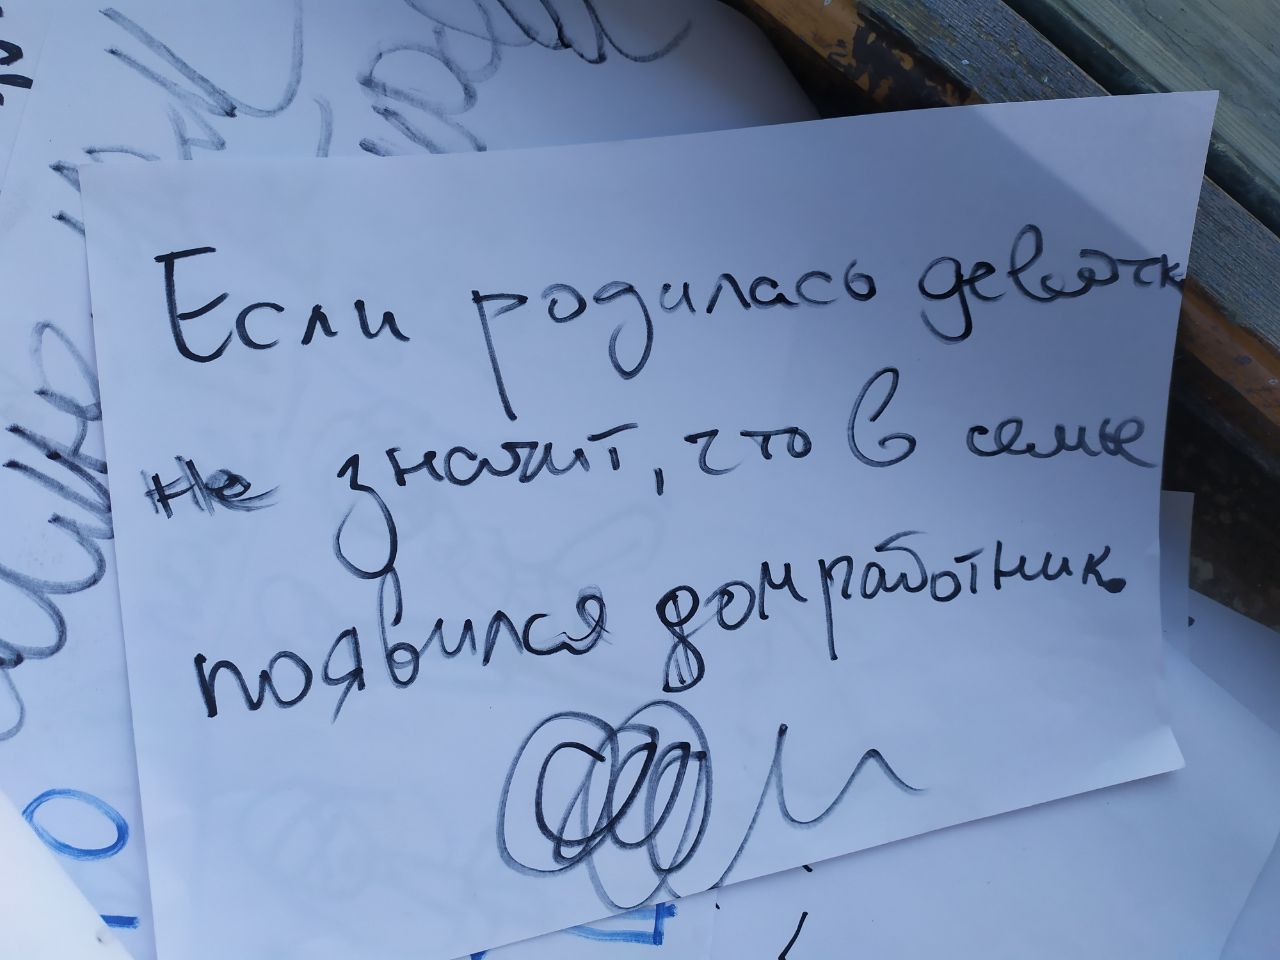 Если родилась девочк
не значит, что в семье
появился домработник